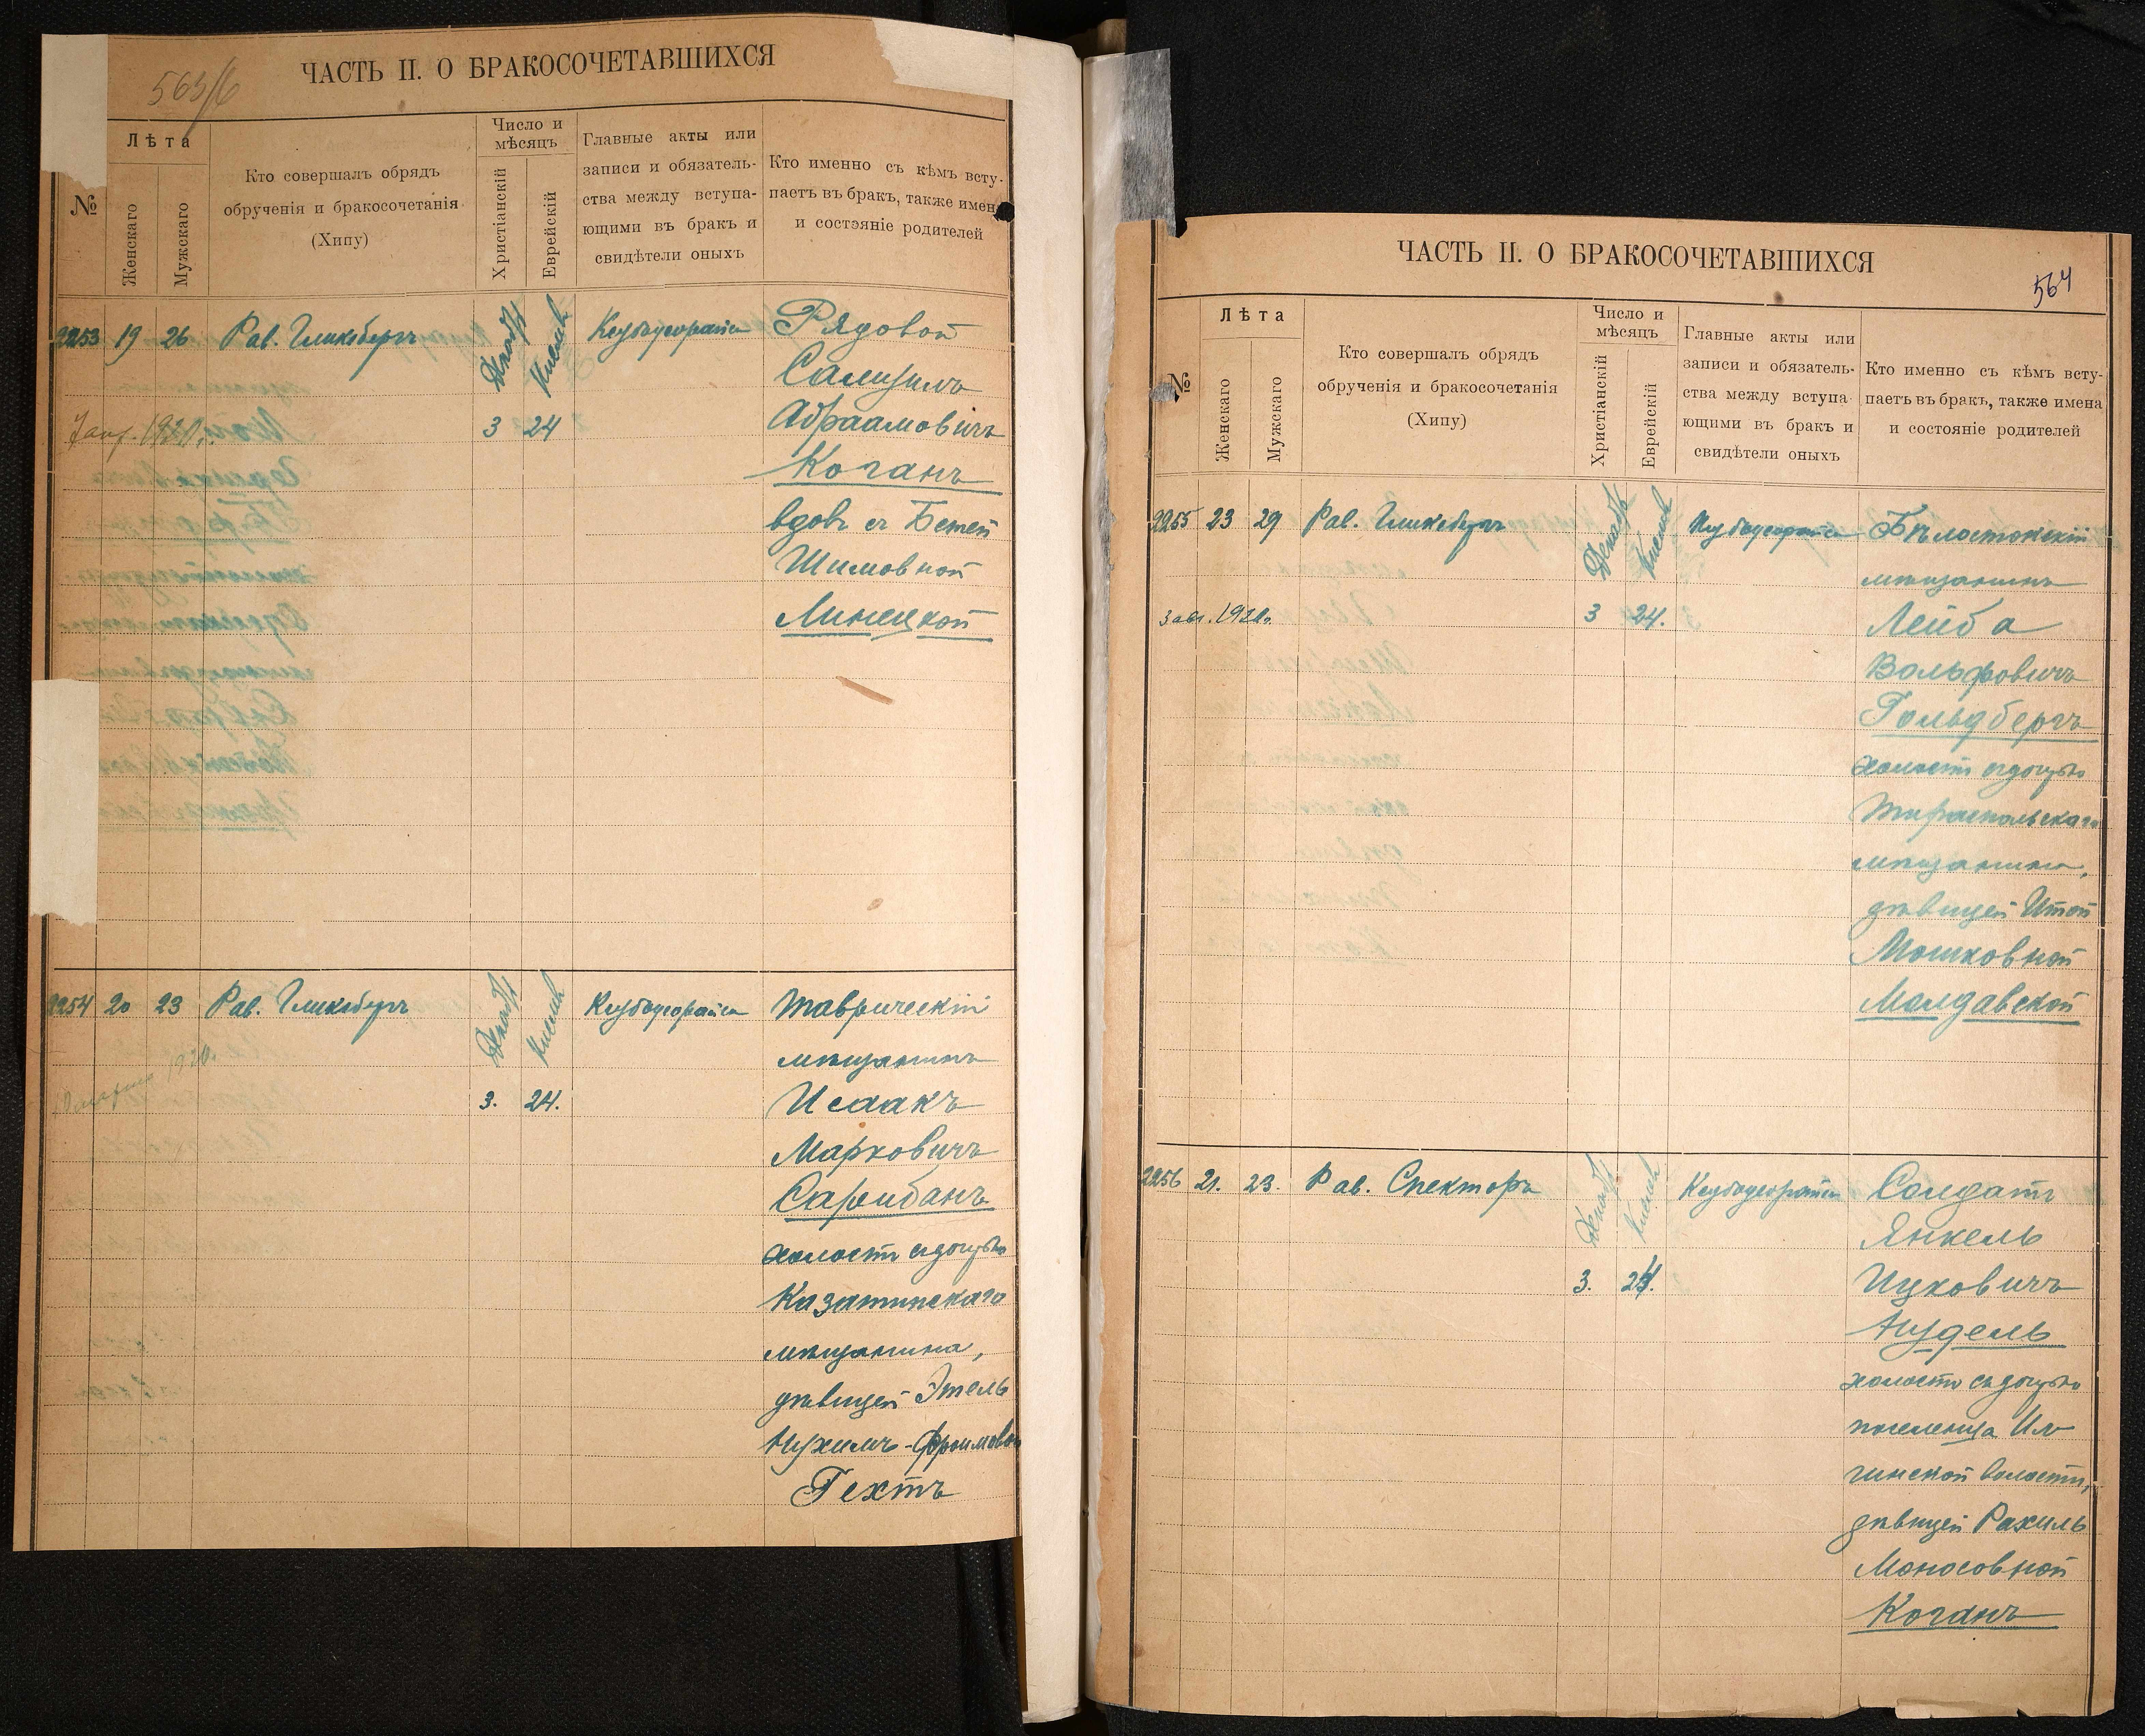 563/б
ЧАСТЬ II. О БРАКОСОЧЕТАВШИХСЯ
№
Лѣта
Женскаго
Мужскаго
Кто совершалъ обрядъ
обрученія и бракосочетанія
(Хипу)
Число и
мѣсяцъ
Христіанскій
Еврейскій
Главные акты или
записи и обязатель-
ства между вступа-
ющими въ бракъ и
свидѣтели оныхъ
Кто именно съ кѣмъ всту-
паетъ въ бракъ, также имена
и состояніе родителей
2253 19 26 Рав. Гликсбергъ Декабр Кислев Рядовой
Салицилъ
3 24 Абраамовичъ
Коганъ
вдовъ съ Бетей
Шимовной
Линецкой
2254 20 23 Рав. Гликсбергъ Декабр Кислев Таврическій
мѣщанинъ
3. 24. Исаакъ
Марковичъ
Сарибанъ
холостъ съ дочерью
Казатинскаго
мѣщанина,
дѣвицей Этель
Нухимъ-Фроимовой
Гехтъ
ЧАСТЬ II. О БРАКОСОЧЕТАВШИХСЯ
564
№
Лѣта
Женскаго
Мужскаго
Кто совершалъ обрядъ
обрученія и бракосочетанія
(Хипу)
Число и
мѣсяцъ
Христіанскій
Еврейскій
Главные акты или
записи и обязатель-
ства между вступа
ющими въ бракъ и
свидѣтели оныхъ
Кто именно съ кѣмъ всту-
паетъ въ бракъ, также имена
и состояніе родителей
2255 23 29 Рав. Гликсбергъ Декабр Кислев Бѣлостокскій
мѣщанинъ
3 24. Лейба
Вольфовичъ
Гольдбергъ
холостъ съ дочерью
Тираспольскаго
мѣщанина,
дѣвицей Итой
Мошковной
Молдавской
2256 21. 23. Рав. Спекторъ Декабр Кислев Солдатъ
Янкель
3. 24. Ицковичъ
Нудель
холостъ съ дочерью
поселенца Ил
гинской волости,
дѣвицей Рахиль
Моносовной
Коганъ